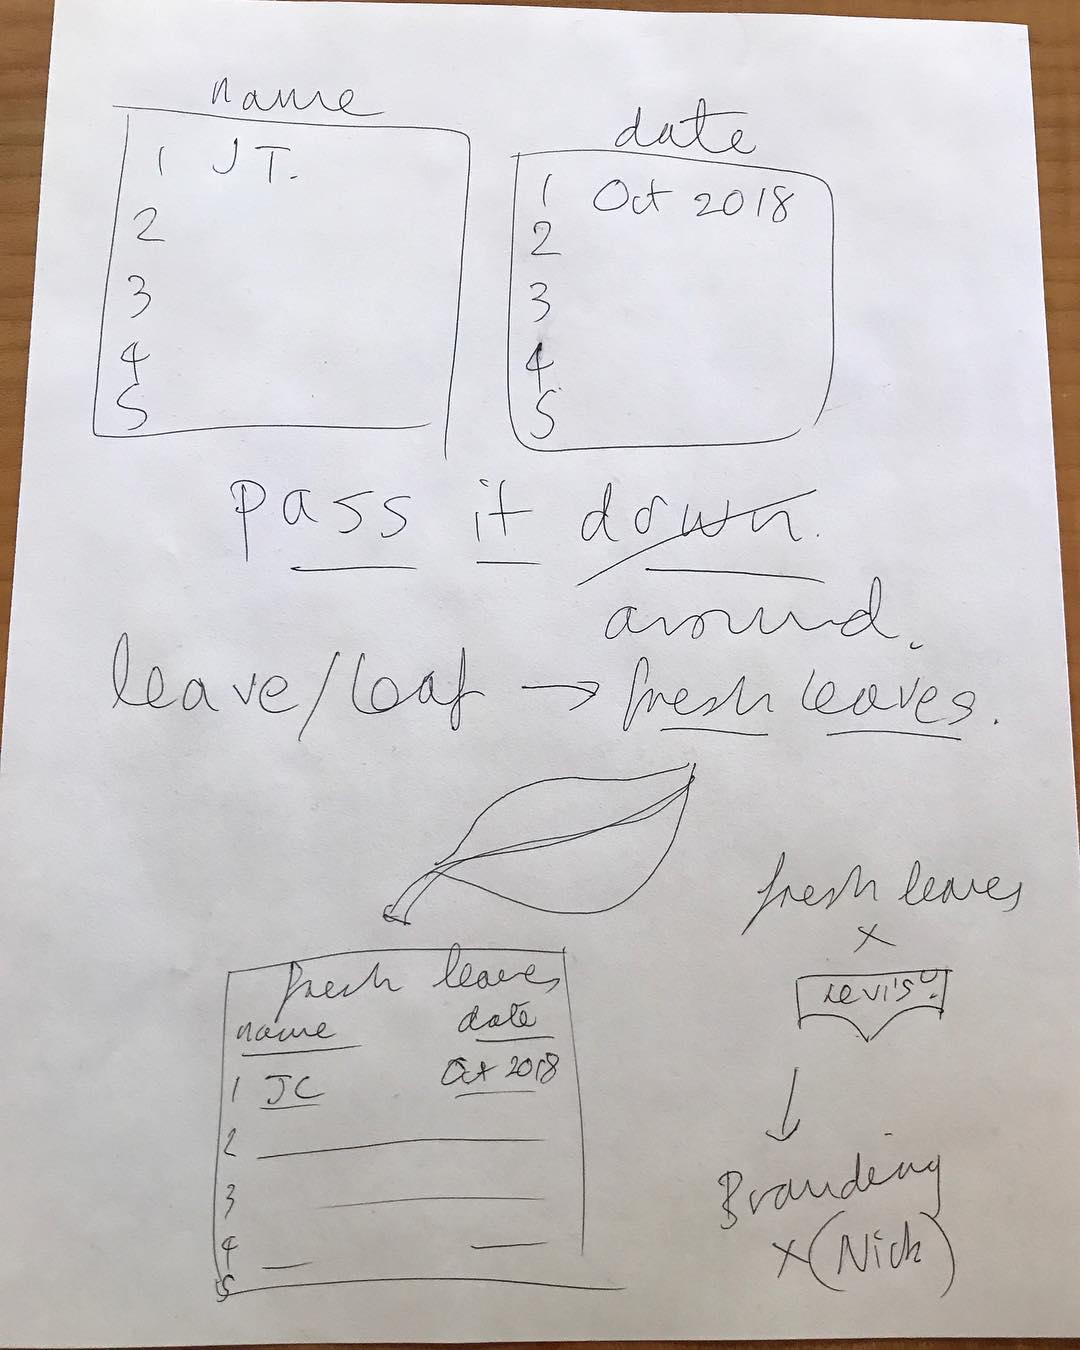 name
1 JT.
2
3
4
5
date
1 Oct 2018
2
3
4
5
pass it down.
around.
leave/leaf → fresh leaves.
fresh leaves
name date
1 JC Oct 2018
2
3
4
5
fresh leaves
x
Levi's
↓
Branding
x (Nick)